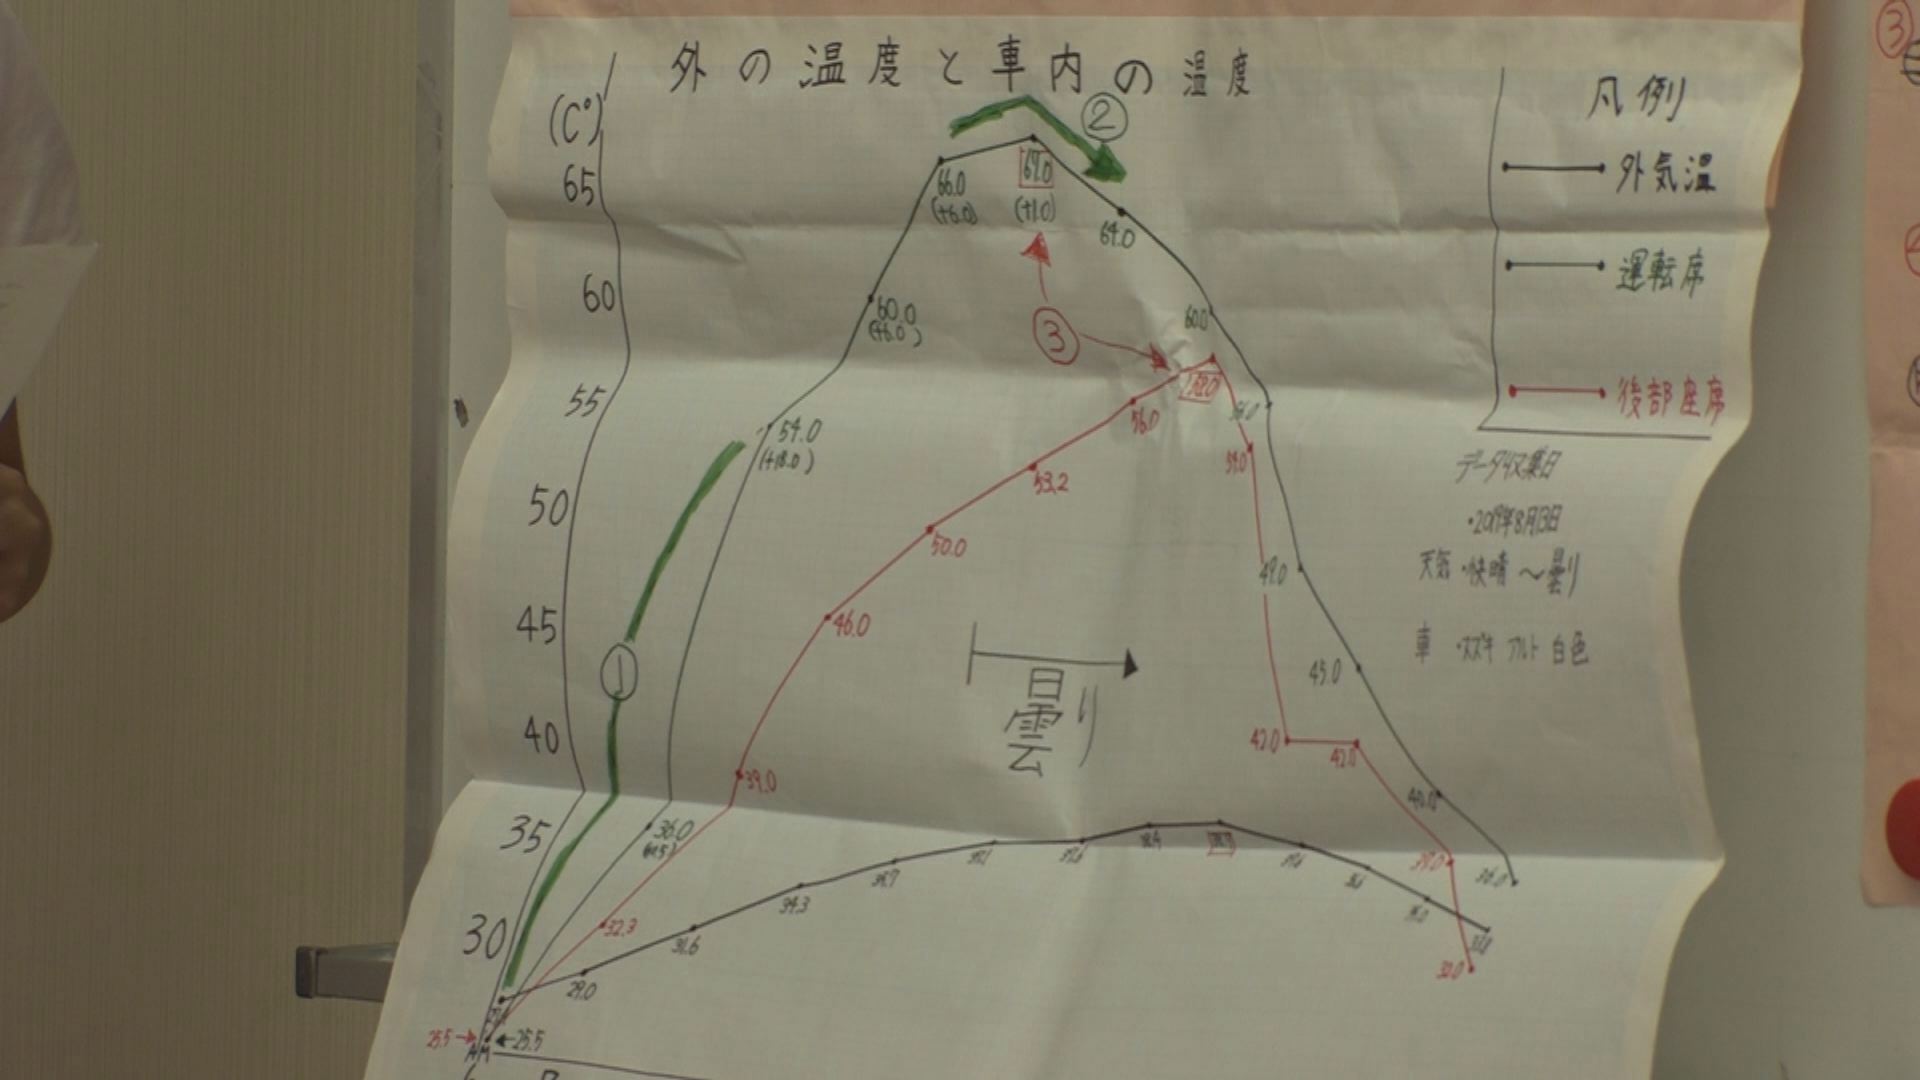 外の温度と車内の温度
(C°)
65
60
55
50
45
40
35
30
凡例
外気温
運転席
後部座席
データ収集日
・2019年8月13日
天気・快晴〜曇り
車・スズキ アルト 白色
①
②
③
曇り
66.0
(+6.0)
67.0
(+1.0)
64.0
60.0
(+6.0)
60.0
54.0
(+18.0)
49.0
45.0
40.0
36.0
36.0
58.0
56.0
53.2
50.0
46.0
39.0
32.3
42.0
42.0
32.0
29.0
31.6
34.3
25.5→
←25.5
AM
③